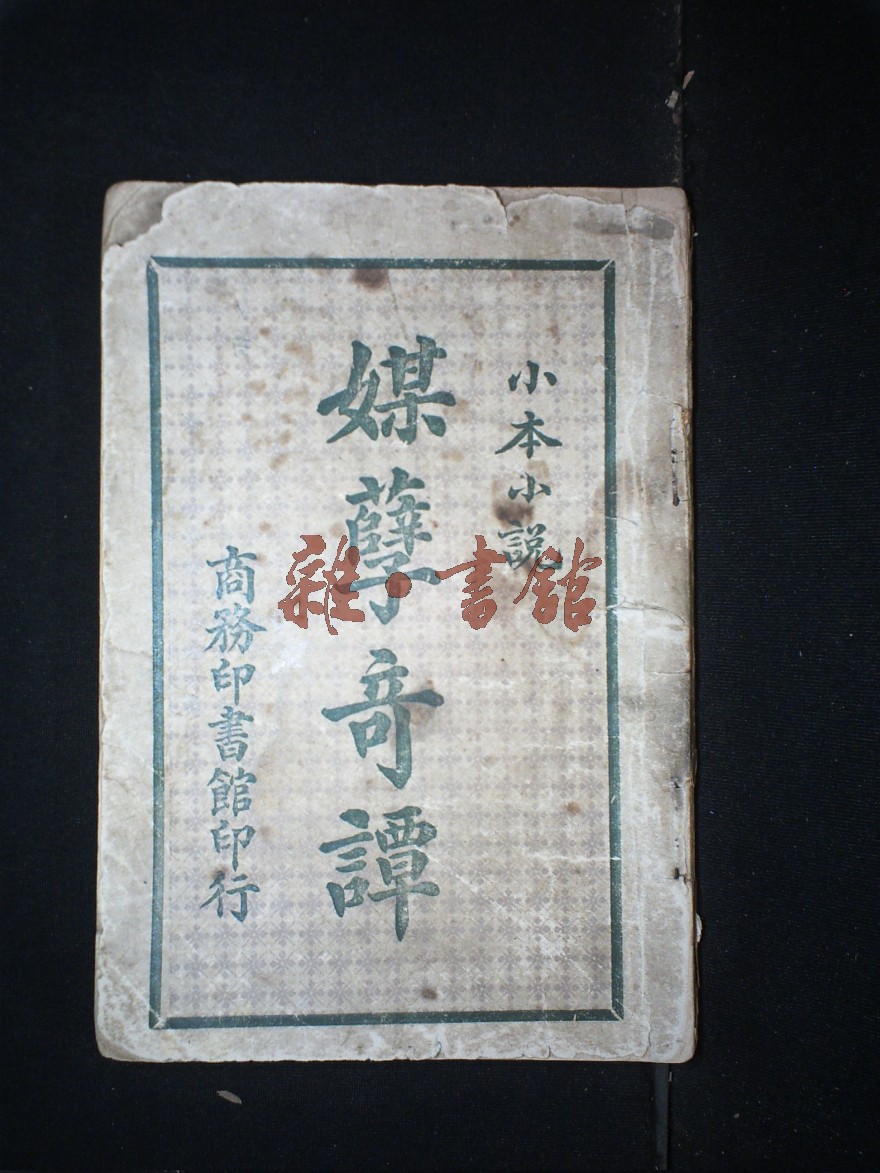 小本小說
媒孽奇譚
商務印書館印行
雜·書館